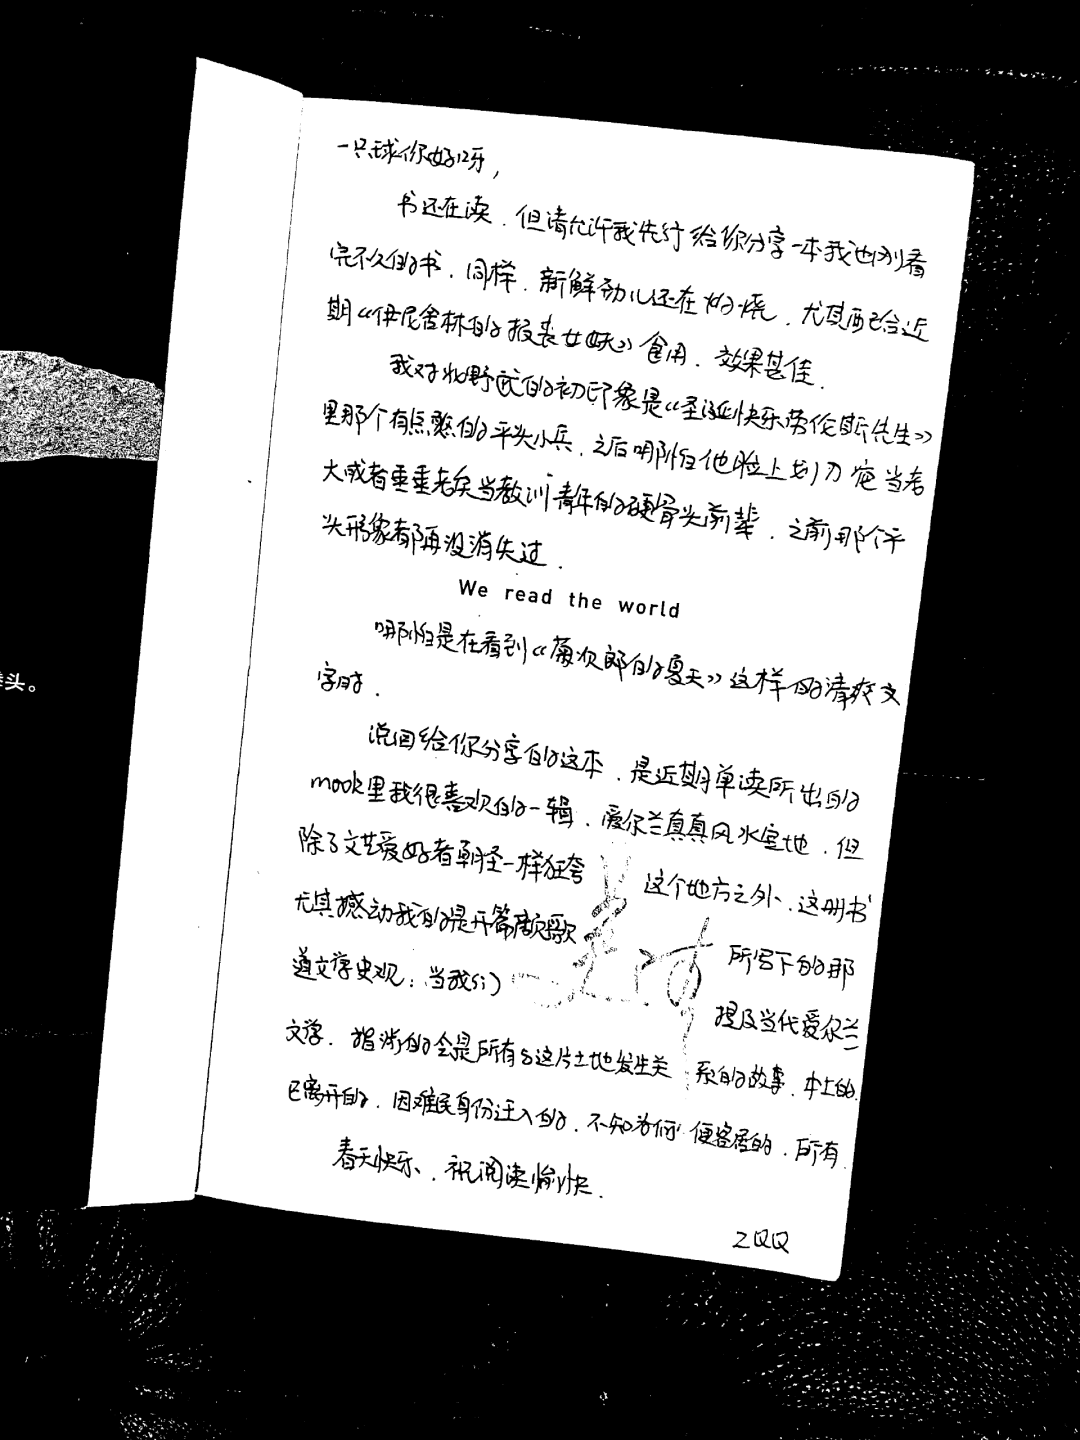 一只球你好呀，
书还在读．但请允许我先行给你分享一本我也刚看
完不久的书．同样．新鲜劲儿还在灼烧．尤其配合近
期《伊尼舍林的报丧女妖》食用．效果甚佳．
我对北野武的初印象是《圣诞快乐劳伦斯先生》
里那个有点憨的平头小兵．之后哪怕他脸上划刀疤当老
大或者垂垂老矣当教训青年的硬骨头前辈．之前那个平
头形象都再没消失过．
We read the world
哪怕是在看到《菊次郎的夏天》这样的清爽文
字时．
说回给你分享的这本．是近期单读所出的
mook里我很喜欢的一辑．爱尔兰真真风水宝地．但
除了文艺爱好者朝圣一样狂夸 这个地方之外、这册书
尤其撼动我的是开篇颜歌 所写下的那
道文学史观：当我们 提及当代爱尔兰
文学．指涉的会是所有与这片土地发生关 系的故事．本土的．
已离开的．因难民身份迁入的．不知为何 便客居的．所有．
春天快乐、．祝阅读愉快．
ZQQ
头。